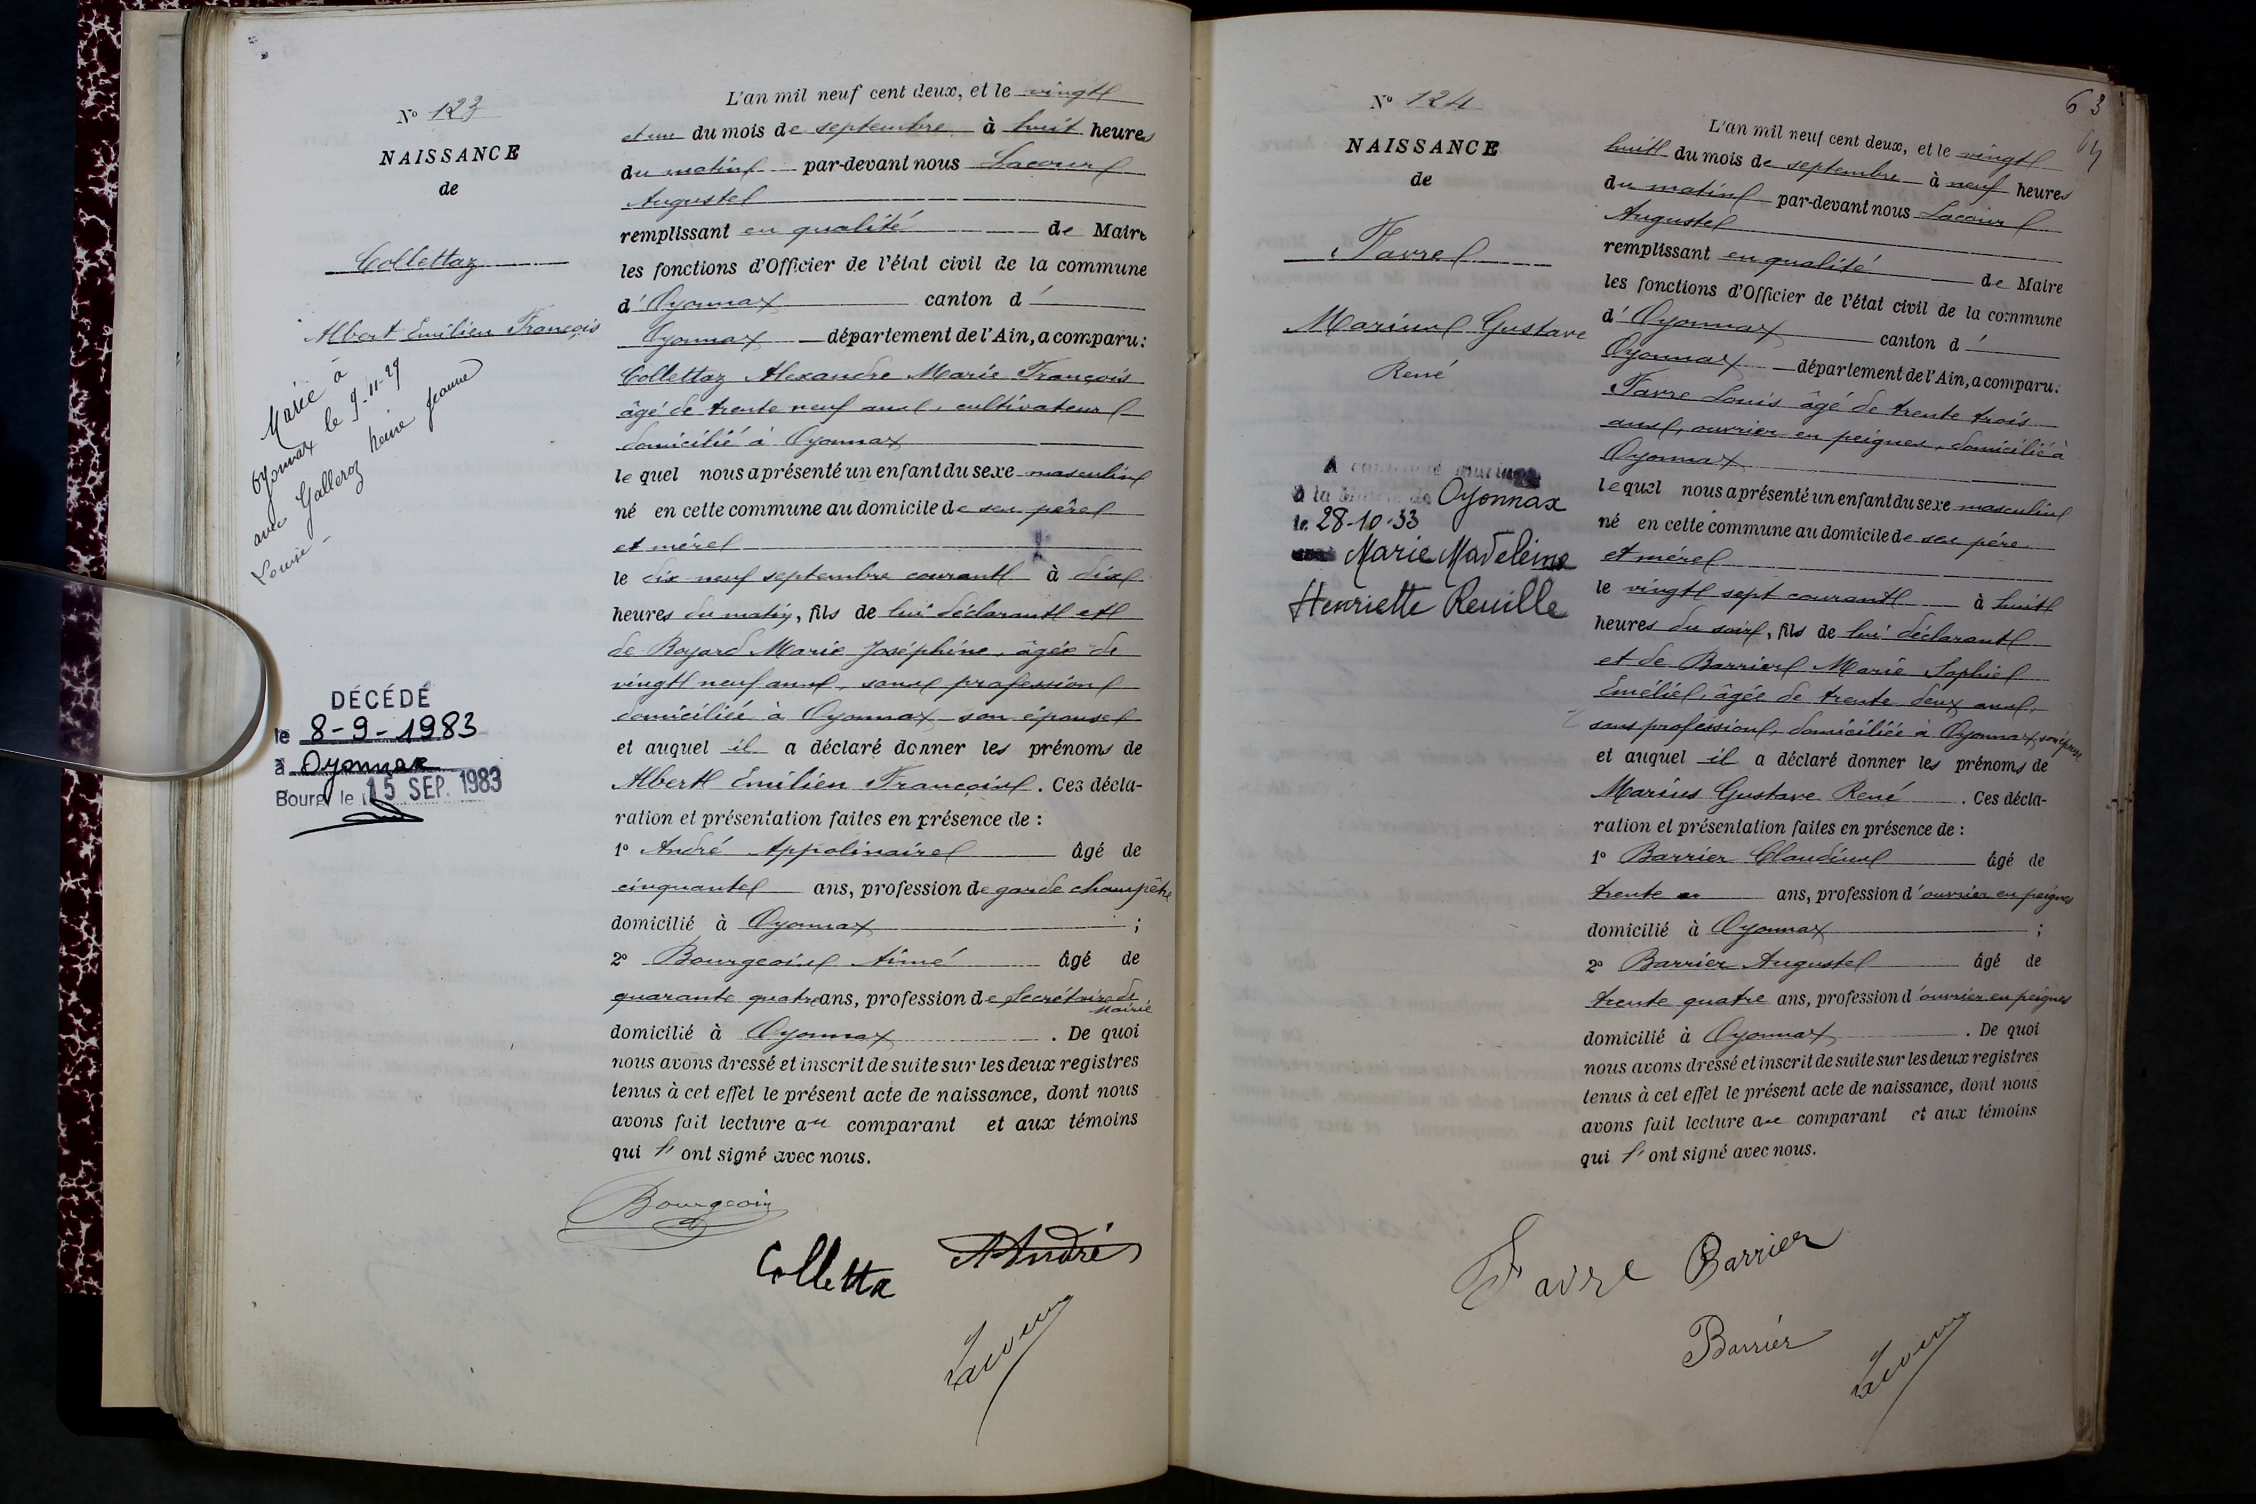 N° 123
NAISSANCE
de
Collettaz
Albert Emilien François
Marié à
Oyonnax le 9-11-29
avec Galleroz Reine Jeanne
Louise -
DÉCÉDÉ
le 8-9-1983
à Oyonnax
Bourg, le 15 SEP. 1983
L'an mil neuf cent deux, et le vingt
et un du mois de septembre à huit heures
du matin par-devant nous Lacour
Auguste
remplissant en qualité de Maire
les fonctions d'Officier de l'état civil de la commune
d'Oyonnax canton d'
Oyonnax département de l'Ain, a comparu:
Collettaz Alexandre Marie François
âgé de trente neuf ans, cultivateur
domicilié à Oyonnax
lequel nous a présenté un enfant du sexe masculin
né en cette commune au domicile de ses père
et mère
le dix neuf septembre courant à dix
heures du matin, fils de lui déclarant et
de Boyard Marie Joséphine, âgée de
vingt neuf ans, sans profession
domiciliée à Oyonnax son épouse
et auquel il a déclaré donner les prénoms de
Albert Emilien François. Ces décla-
ration et présentation faites en présence de :
1° André Appolinaire âgé de
cinquante ans, profession de garde champêtre
domicilié à Oyonnax ;
2° Bourgeois Aimé âgé de
quarante quatre ans, profession de Secrétaire de
Mairie
domicilié à Oyonnax . De quoi
nous avons dressé et inscrit de suite sur les deux registres
tenus à cet effet le présent acte de naissance, dont nous
avons fait lecture au comparant et aux témoins
qui l'ont signé avec nous.
Bourgeois
Colletta
A André
Lacour
63
64
N° 124
NAISSANCE
de
Favre
Marius Gustave
René
A contracté mariage
à la Mairie de Oyonnax
le 28-10-33
avec Marie Madeleine
Henriette Reuille
L'an mil neuf cent deux, et le vingt
huit du mois de septembre à neuf heures
du matin par-devant nous Lacour
Auguste
remplissant en qualité de Maire
les fonctions d'Officier de l'état civil de la commune
d'Oyonnax canton d'
Oyonnax département de l'Ain, a comparu:
Favre Louis âgé de trente trois
ans, ouvrier en peignes, domicilié à
Oyonnax
lequel nous a présenté un enfant du sexe masculin
né en cette commune au domicile de ses père
et mère
le vingt sept courant à huit
heures du soir, fils de lui déclarant
et de Barrier Marie Sophie
Emélie, âgée de trente deux ans,
sans profession, domiciliée à Oyonnax, son épouse
et auquel il a déclaré donner les prénoms de
Marius Gustave René . Ces décla-
ration et présentation faites en présence de :
1° Barrier Claudius âgé de
trente ans, profession d'ouvrier en peignes
domicilié à Oyonnax ;
2° Barrier Auguste âgé de
trente quatre ans, profession d'ouvrier en peignes
domicilié à Oyonnax . De quoi
nous avons dressé et inscrit de suite sur les deux registres
tenus à cet effet le présent acte de naissance, dont nous
avons fait lecture au comparant et aux témoins
qui l'ont signé avec nous.
Favre Barrier
Barrier
Lacour